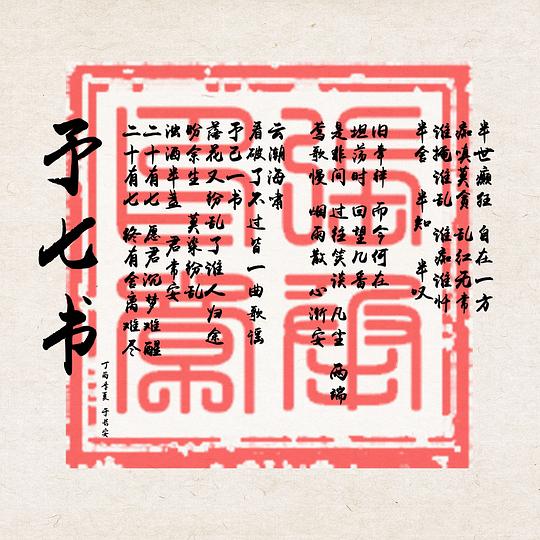 半世癫狂 自在一方
痴嗔莫贪 乱红无常
谁掩谁乱 谁痴谁忏
半舍 半知 半叹
旧 辞 而今何在
坦荡时 回望几番
是非间 过往笑谈 凡尘 两端
莺歌慢 烟雨散 心渐安
云潮海肃
看破了不过皆一曲歌谣
予己一书
落花又纷乱了谁人归途
盼余生 莫染纷乱
浊酒半盏 君常安
二十有七 愿君沉梦难醒
二十有七 终有舍离难尽
予七书
丁酉季夏 于长安